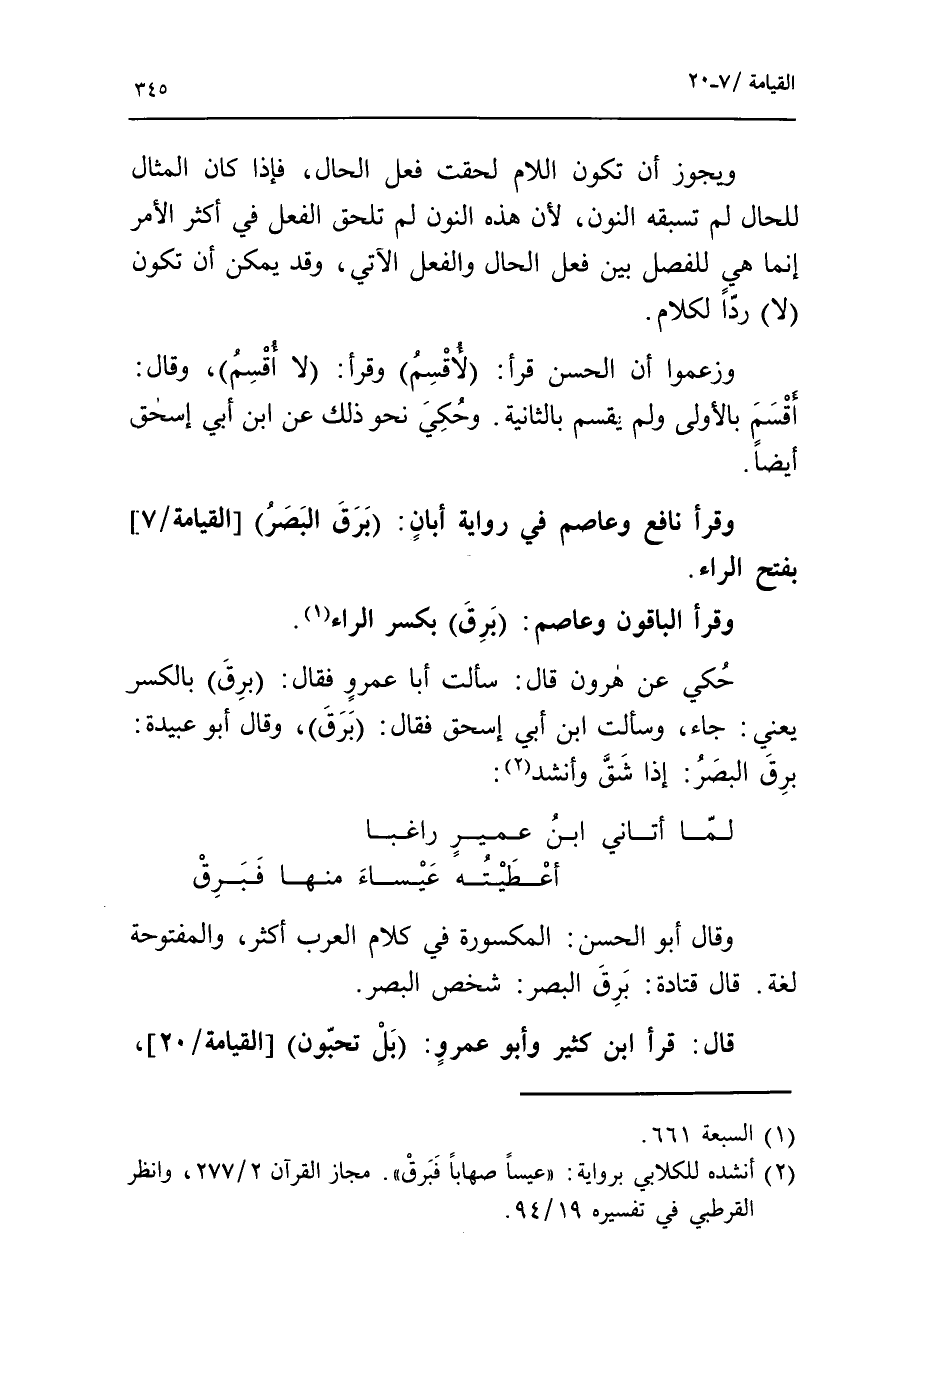 القيامة /٧-٢٠
٣٤٥
ويجوز أن تكون اللام لحقت فعل الحال، فإذا كان المثال
للحال لم تسبقه النون، لأن هذه النون لم تلحق الفعل في أكثر الأمر
إنما هي للفصل بين فعل الحال والفعل الآتي، وقد يمكن أن تكون
(لا) ردّاً لكلام.
وزعموا أن الحسن قرأ: (لَأُقْسِمُ) وقرأ: (لا أُقْسِمُ)، وقال:
أَقْسَمَ بالأولى ولم يقسم بالثانية. وحُكِيَ نحو ذلك عن ابن أبي إسحٰق
أيضاً.
وقرأ نافع وعاصم في رواية أبانٍ: (بَرَقَ البَصَرُ) [القيامة/٧]
بفتح الراء.
وقرأ الباقون وعاصم: (بَرِقَ) بكسر الراء(١).
حُكي عن هٰرون قال: سألت أبا عمروٍ فقال: (برِقَ) بالكسر
يعني: جاء، وسألت ابن أبي إسحق فقال: (بَرَقَ)، وقال أبو عبيدة:
برِقَ البصَرُ: إذا شَقَّ وأنشد(٢):
لـمّـا أتـاني ابـنُ عـميـرٍ راغـبـا
أعْـطَيْـتُـه عَيْـسـاءَ منـهـا فَـبَـرِقْ
وقال أبو الحسن: المكسورة في كلام العرب أكثر، والمفتوحة
لغة. قال قتادة: بَرِقَ البصر: شخص البصر.
قال: قرأ ابن كثير وأبو عمروٍ: (بَلْ تحبّون) [القيامة/٢٠]،
(١) السبعة ٦٦١.
(٢) أنشده للكلابي برواية: «عيساً صهاباً فَبَرقْ». مجاز القرآن ٢٧٧/٢، وانظر
القرطبي في تفسيره ٩٤/١٩.